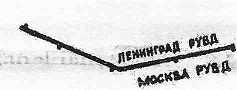 ЛЕНИНГРАД РУВД
МОСКВА РУВД